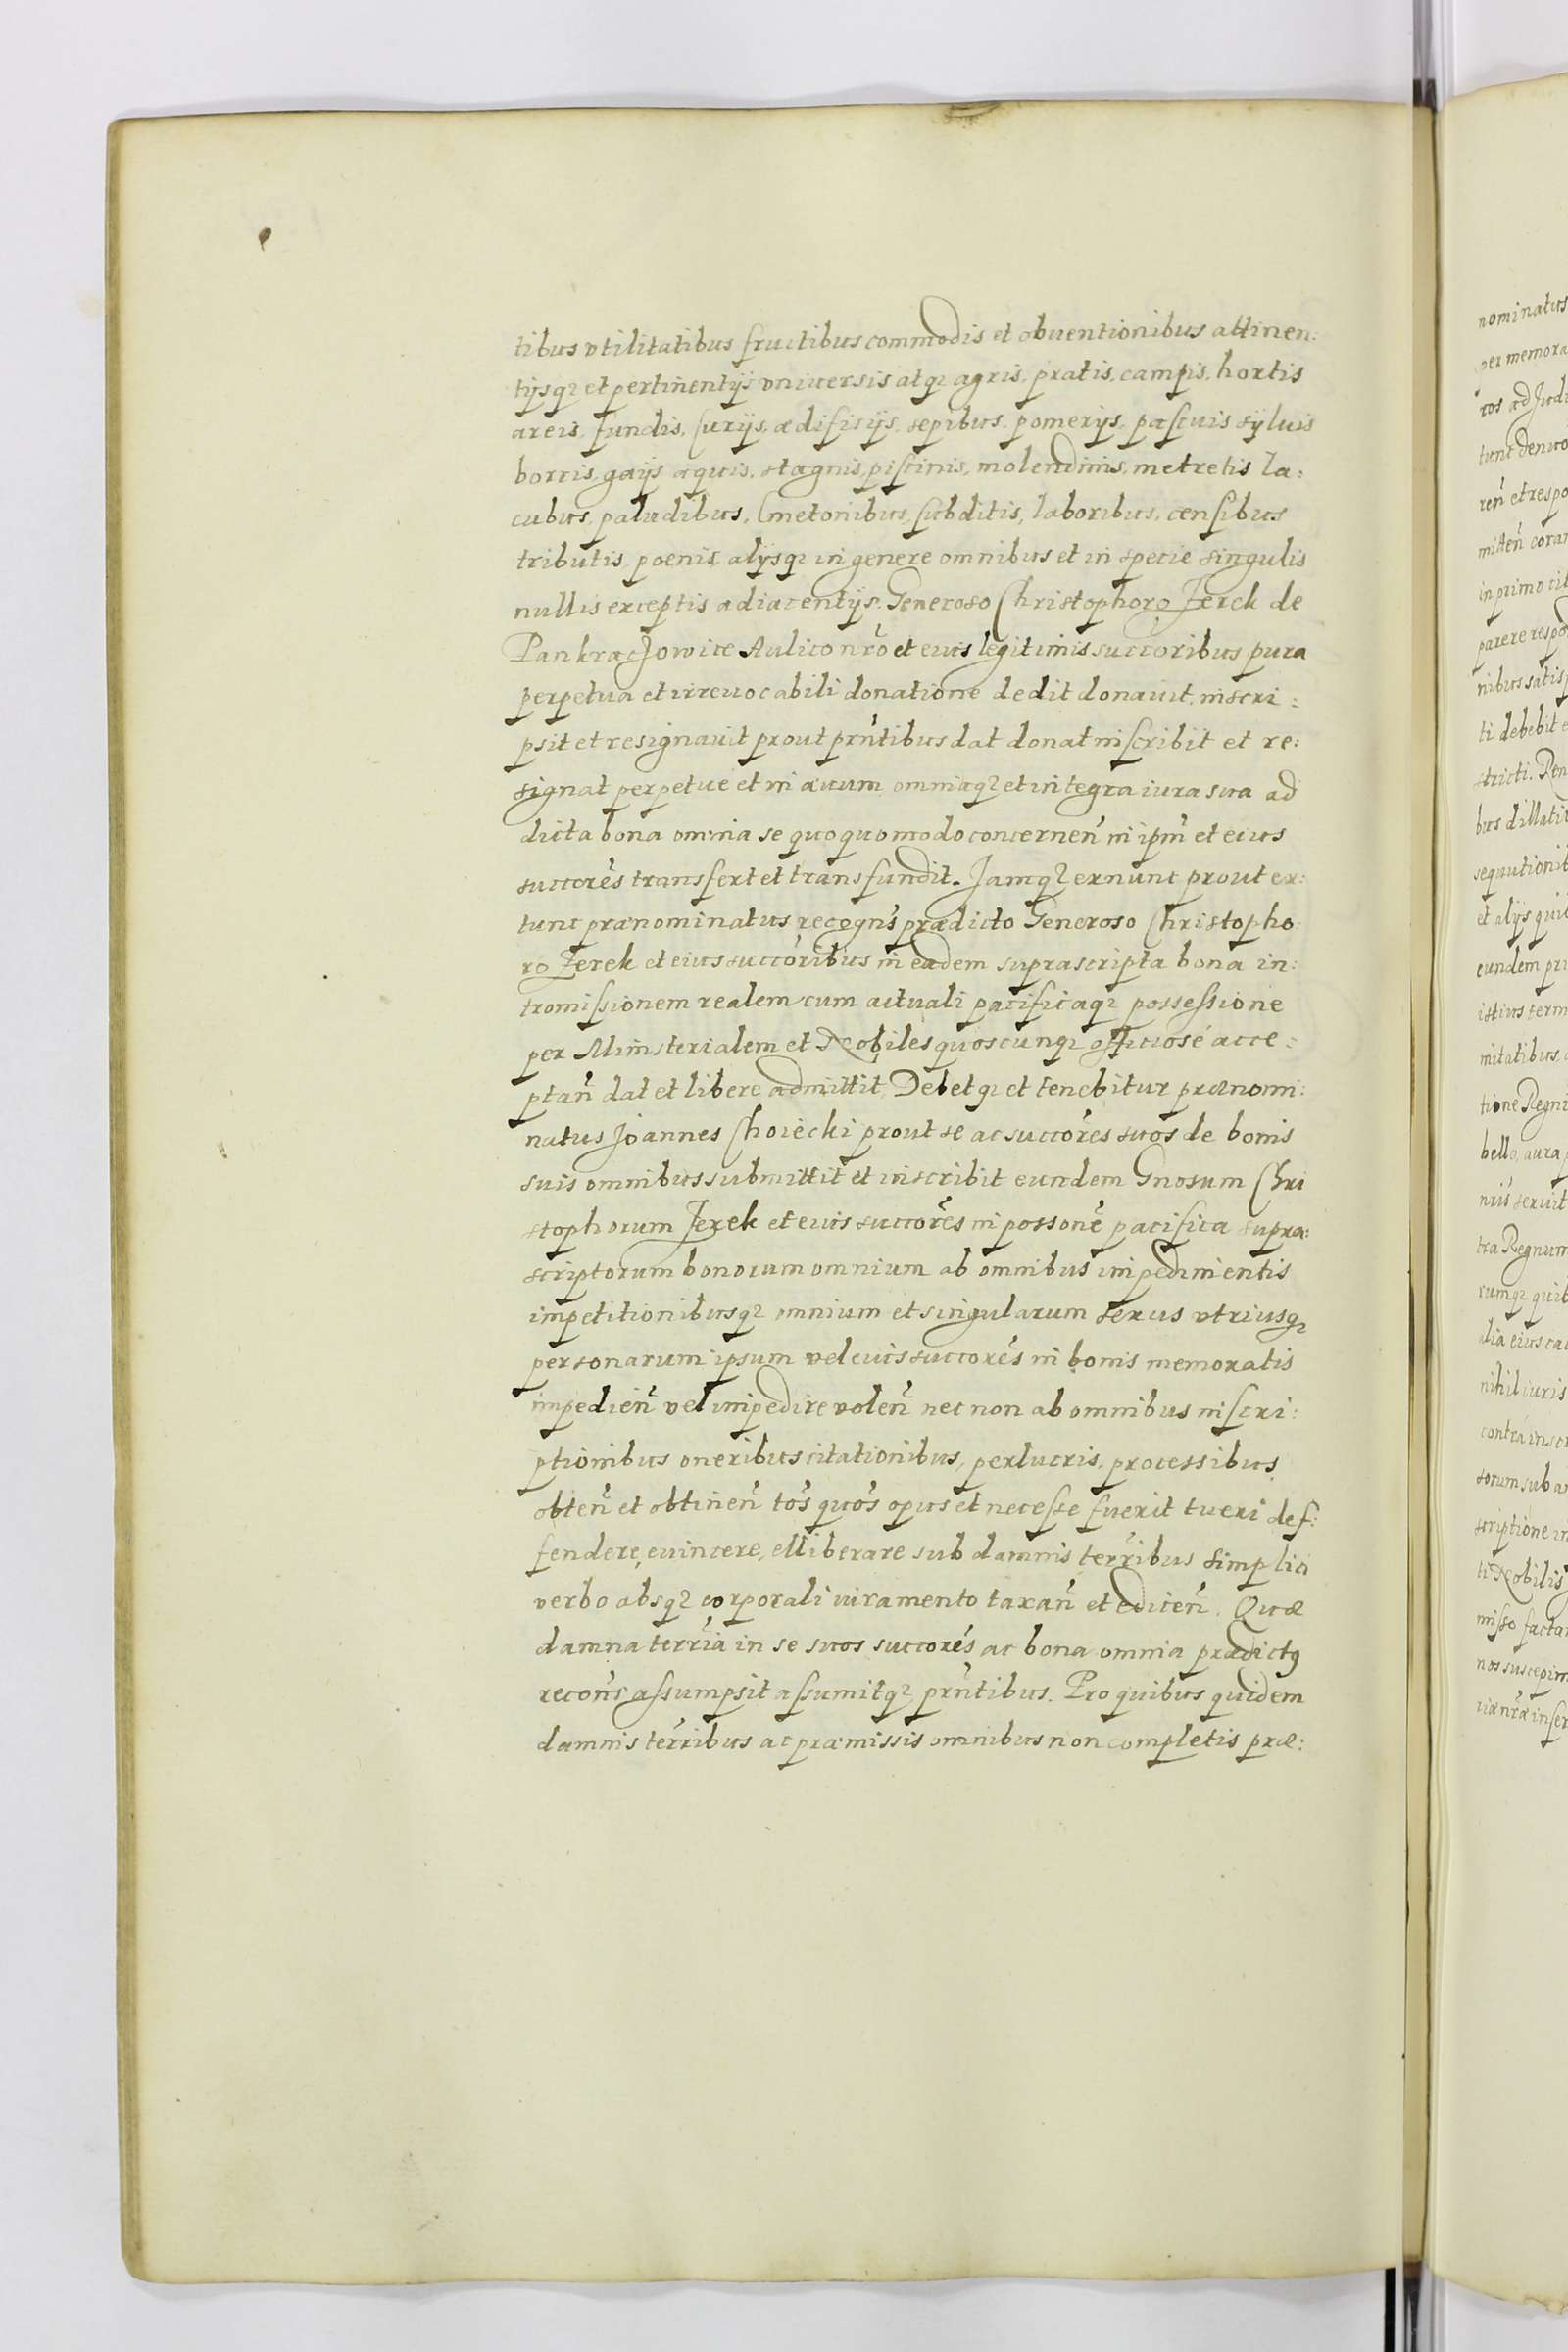 tibus vtilitatibus fructibus commodis et obuentionibus attinen:
tijsq3 et pertinentijs vniuersis atq3 agris, pratis, campis, hortis
areis, fundis, Curijs, ædificijs, sepibus, pomerijs, pascuis syluis
borris, gaijs aquis, stagnis, piscinis, molendinis, metretis la:
cubus, paludibus, Cmetonibus, subditis, laboribus, censibus
tributis, poenis, alijsq3 in genere omnibus et in specie singulis
nullis exceptis adiacentijs. Generoso Christophoro Jerck de
Pankracjowice Aulico nr̃o et eius legitimis succoribus pura
perpetua et irreuocabili donatione dedit donauit, inscri:
psit et resignauit prout prñtibus dat donat inscribit et re:
signat perpetue et in æuum omniaq3 et integra iura sua ad
dicta bona omnia se quoquomodo concerneñ in ipm̃ et eius
succorẽs transfert et transfundit. Jamq3 exnunc prout ex:
tunc prænominatus recogns̃ prædicto Generoso Christopho
ro Jerek et eius succor̃ibus in eadem suprascripta bona in:
tromissionem realem cum actuali pacificaq3 possessione
per Ministerialem et Nobiles quoscunq3 officiosé acce:
ptañ dat et libere admittit, Debetq3 et tenebitur prænomi:
natus Joannes Choiecki prout se ac succorẽs suos de bonis
suis omnibus submittit et inscribit eundem Gnosum Chri
stophorum Jerek et eius succorẽs in possonẽ pacifica supra:
scriptorum bonorum omnium ab omnibus impedimentis
impetitionibusq3 omnium et singularum sexus vtriusq3
personarum ipsum vel eius succorẽs in bonis memoratis
impedieñ vel impedire voleñ nec non ab omnibus inscri:
ptionibus oneribus citationibus, perlucris, processibus
obteñ et obtineñ tõs quõs opus et necesse fuerit tueri def:
fendere, euincere, elliberare sub damnis terr̃ibus simplici
verbo absq3 corporali iuramento taxañ et ediceñ. Quæ
damna terr̃ia in se suos succorẽs ac bona omnia prædictꝰ
recoñs assumpsit assumitq3 prñtibus. Pro quibus quidem
damnis terr̃ibus ac præmissis omnibus non completis præ:
nominatus
ros ad
eundem
tione Regni
tra Regnum
nihil iuris
scriptione
ti Nobilis